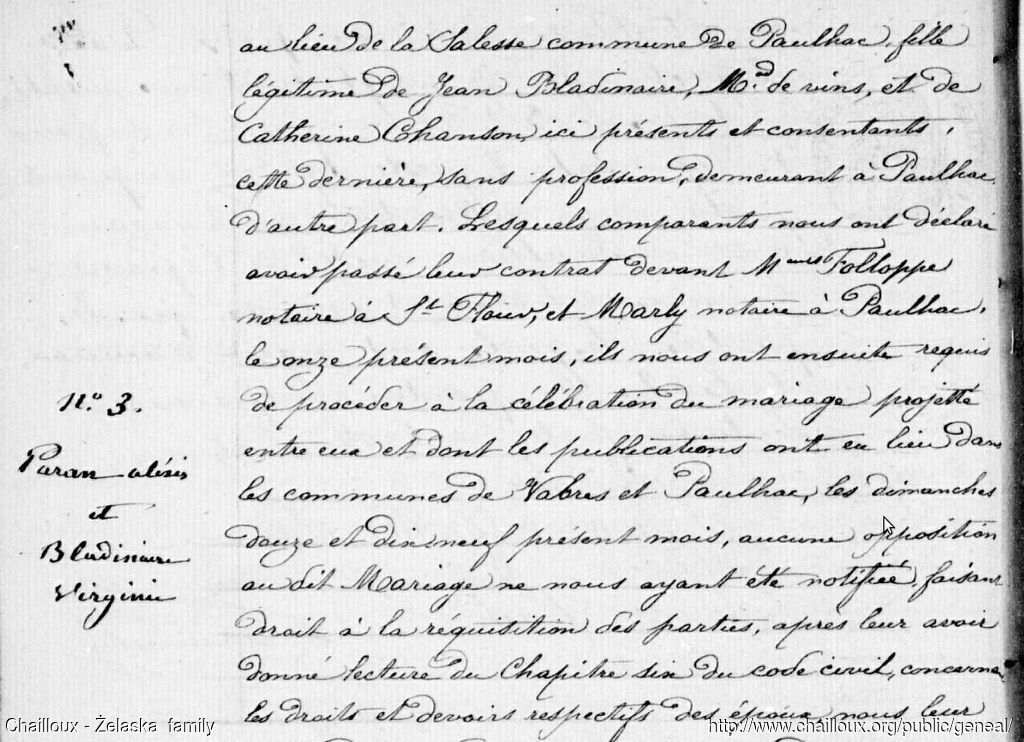 au lieu de la Salesse commune de Paulhac, fille
légitime de Jean Bladinaire, Md. de vins, et de
Catherine Chanson, ici présents et consentants,
cette dernière, sans profession, demeurant à Paulhac
d'autre part. Lesquels comparants nous ont déclaré
avoir passé leur contrat devant Mtres Folloppe
notaire à St Flour, et Marly notaire à Paulhac,
le onze présent mois, ils nous ont ensuite requis
de procéder à la célébration du mariage projetté
entre eux et dont les publications ont eu lieu dans
les communes de Vabres et Paulhac, les dimanches
douze et dix neuf présent mois, aucune opposition
au dit Mariage ne nous ayant été notifiée, faisant
droit à la réquisition des parties, après leur avoir
donné lecture du Chapitre six du code civil, concerna
les droits et devoirs respectifs des époux, nous leur
n.o 3.
Paran alexis
et
Bladinaire
Virginie
Chailloux - Żelaska family
http://www.chailloux.org/public/geneal/